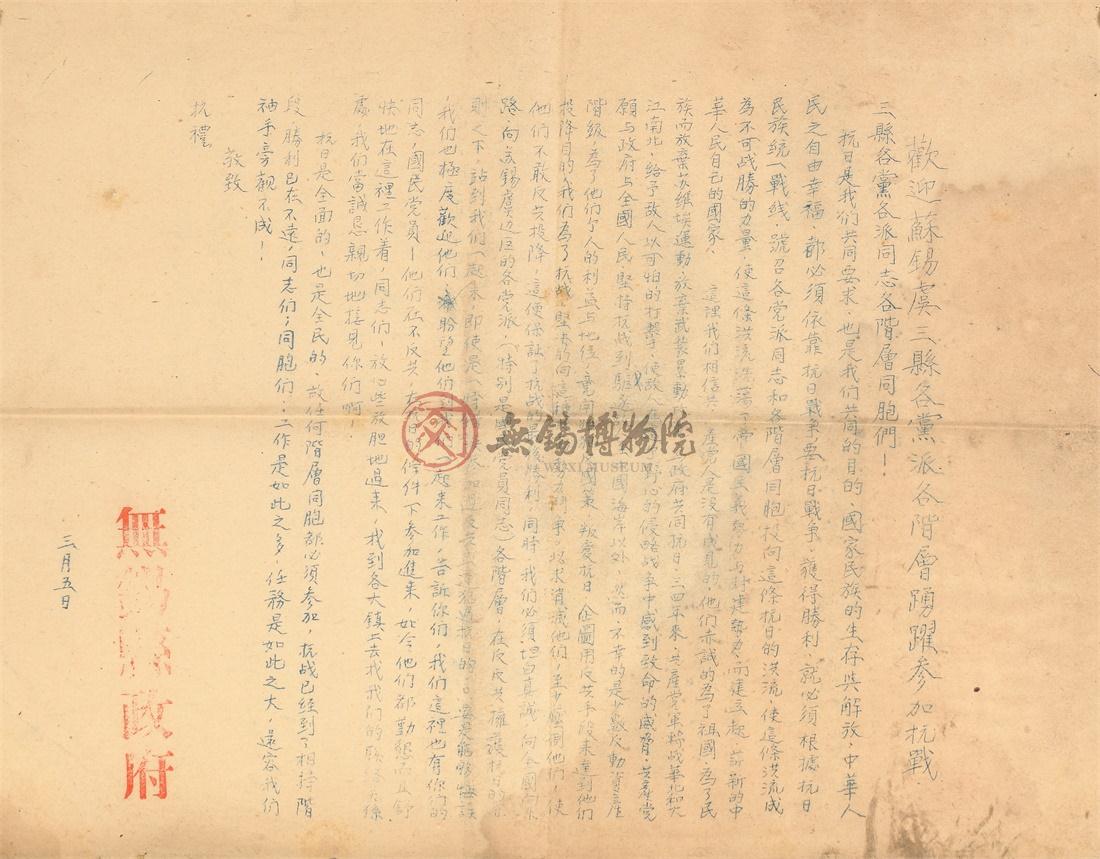 歡迎蘇錫虞三縣各黨派各階層踴躍參加抗戰
三縣各黨各派同志各階層同胞們！
抗日是我們共同要求，也是我們共同的目的，國家民族的生存與解放，中華人
民之自由幸福，都必須依靠抗日戰爭，要抗日戰爭，獲得勝利，就必須根據抗日
民族統一戰线，號召各党派同志和各階層同胞投向這條抗日的洪流，使這條洪流成
為不可战勝的力量，使這條洪流洗蕩了帝國主義勢力与封建勢力，而建立起嶄新的中
華人民自己的國家。 這裡我們相信共產黨人是沒有成見的，他們赤誠的為了祖國，為了民
族而放棄苏維埃運動，放棄武裝暴動，政府共同抗日，三四年來，共產党軍轉战華北和大
江南北，給予敌人以可怕的打擊，使敌人在野心的侵略战爭中感到致命的威脅，共產党
願与政府与全國人民堅持抗战到國海岸以外，然而，不幸的是少數反動資產
階級，為了他們个人的利益与地位，國策，叛變抗日，企圖用反共手段來達到他們
投降目的，我們為了抗战，堅決的向這種勢力鬥爭，以求消滅他們，至少壓倒他們，使
他們不敢反共投降，這便保証了抗战的最後勝利，同時，我們必須坦白真誠，向全國
路，向苏錫虞边区的各党派（特別是國民党員同志）各階層，在反反共，擁護抗日的原
則之下，站到我們一起來，即使是一時參加过反共
我們也極度歡迎他們，盼望他們一起來工作，告訴你們，我們這裡也有你們的
同志，國民党員！他們在不反共，抗日的條件下參加進來，如今他們都勤懇而且舒
快地在這裡工作着，同志們，放心些放胆地過來，找到各大鎮上去找我們的联絡关係
處，我們當誠懇親切地接見你們啊！
抗日是全面的，也是全民的，故任何階層同胞都必須參加，抗战已經到了相持階
段，勝利已在不遠，同志們，同胞們，工作是如此之多，任務是如此之大，還容我們
袖手旁觀不成！
敬致
抗禮
無錫縣政府
三月五日
無錫博物院
WUXI MUSEUM